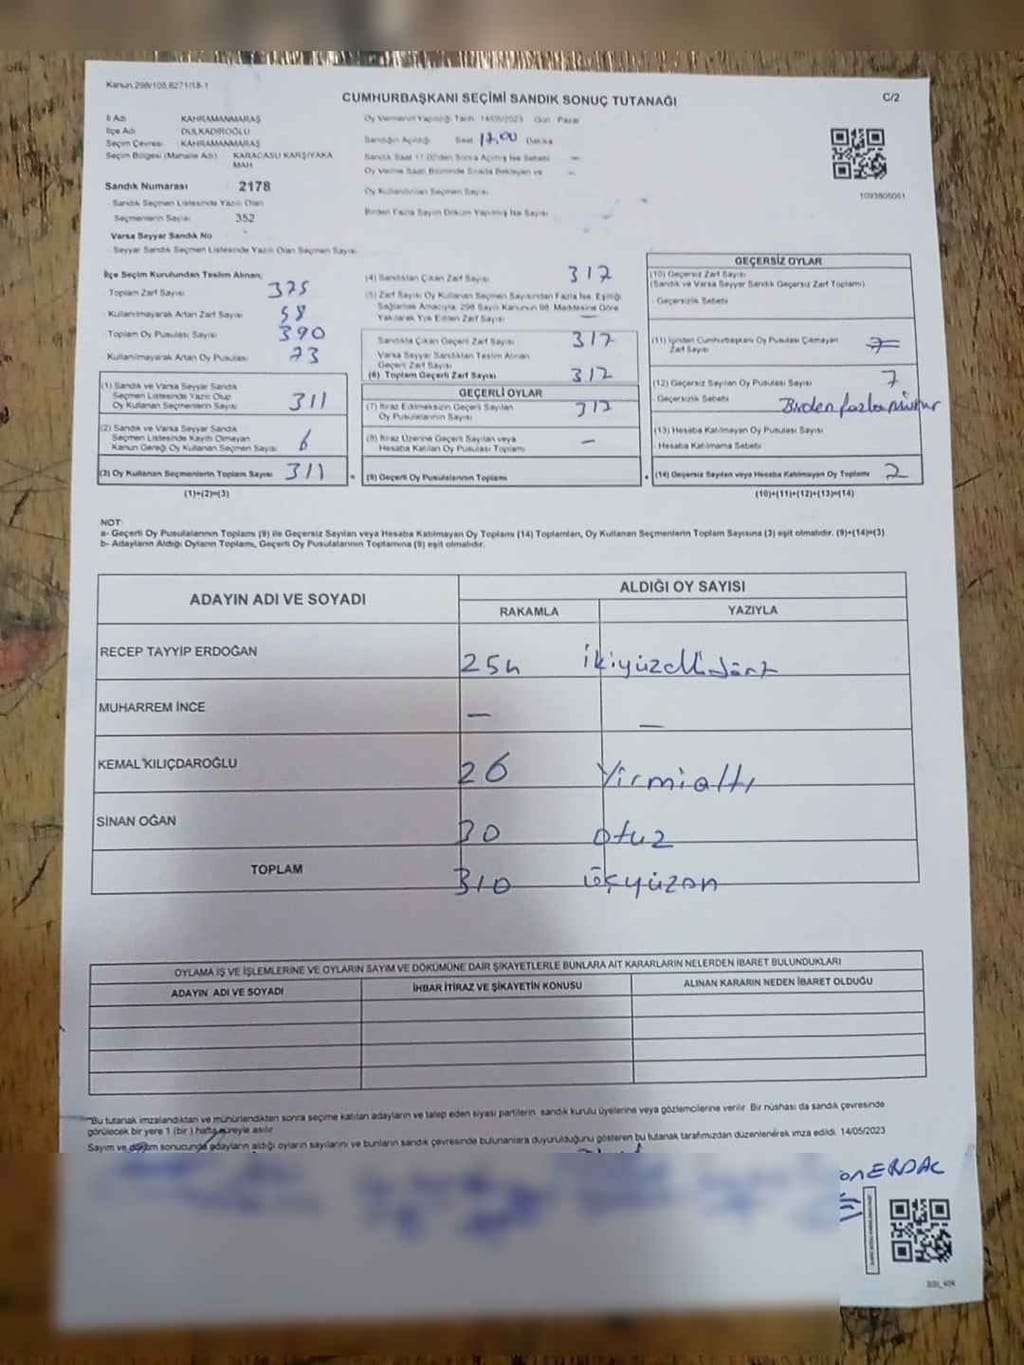 Kanun.298/105,6271/18-1
CUMHURBAŞKANI SEÇİMİ SANDIK SONUÇ TUTANAĞI
C/2
İl Adı KAHRAMANMARAŞ
İlçe Adı DULKADİROĞLU
Seçim Çevresi KAHRAMANMARAŞ
Seçim Bölgesi (Mahalle Adı) KARACASU KARŞIYAKA MAH.
Sandık Numarası 2178
Sandık Seçmen Listesinde Yazılı Olan
Seçmenlerin Sayısı 352
Varsa Seyyar Sandık No
Seyyar Sandık Seçmen Listesinde Yazılı Olan Seçmen Sayısı
Oy Vermenin Yapıldığı Tarih 14/05/2023 Gün Pazar
Sandığın Açıldığı Saat 17.00 Dakika
Sandık Saat 17.00'den Sonra Açılmış İse Sebebi —
Oy Verme Saati Bitiminde Sırada Bekleyen ve —
Oy Kullandırılan Seçmen Sayısı
Birden Fazla Sayım Döküm Yapılmış İse Sayısı
1093805051
İlçe Seçim Kurulundan Teslim Alınan;
Toplam Zarf Sayısı 375
Kullanılmayarak Artan Zarf Sayısı 58
Toplam Oy Pusulası Sayısı 390
Kullanılmayarak Artan Oy Pusulası 73
(1) Sandık ve Varsa Seyyar Sandık
Seçmen Listesinde Yazılı Olup
Oy Kullanan Seçmenlerin Sayısı 311
(2) Sandık ve Varsa Seyyar Sandık
Seçmen Listesinde Kayıtlı Olmayan
Kanun Gereği Oy Kullanan Seçmen Sayısı 6
(3) Oy Kullanan Seçmenlerin Toplam Sayısı 311
(1)+(2)=(3)
(4) Sandıktan Çıkan Zarf Sayısı 317
(5) Zarf Sayısı Oy Kullanan Seçmen Sayısından Fazla İse, Eşitliği
Sağlamak Amacıyla, 298 Sayılı Kanunun 98. Maddesine Göre
Yakılarak Yok Edilen Zarf Sayısı —
Sandıkta Çıkan Geçerli Zarf Sayısı 317
Varsa Seyyar Sandıktan Teslim Alınan
Geçerli Zarf Sayısı
(6) Toplam Geçerli Zarf Sayısı 317
GEÇERLİ OYLAR
(7) İtiraz Edilmeksizin Geçerli Sayılan
Oy Pusulalarının Sayısı 317
(8) İtiraz Üzerine Geçerli Sayılan veya
Hesaba Katılan Oy Pusulası Toplamı —
(9) Geçerli Oy Pusulalarının Toplamı
GEÇERSİZ OYLAR
(10) Geçersiz Zarf Sayısı
(Sandık ve Varsa Seyyar Sandık Geçersiz Zarf Toplamı)
Geçersizlik Sebebi
(11) İçinden Cumhurbaşkanı Oy Pusulası Çıkmayan
Zarf Sayısı
(12) Geçersiz Sayılan Oy Pusulası Sayısı 7
Geçersizlik Sebebi Birden fazla mühür
(13) Hesaba Katılmayan Oy Pusulası Sayısı
Hesaba Katılmama Sebebi
(14) Geçersiz Sayılan veya Hesaba Katılmayan Oy Toplamı
(10)+(11)+(12)+(13)=(14)
NOT:
a- Geçerli Oy Pusulalarının Toplamı (9) ile Geçersiz Sayılan veya Hesaba Katılmayan Oy Toplamı (14) Toplamları, Oy Kullanan Seçmenlerin Toplam Sayısına (3) eşit olmalıdır. (9)+(14)=(3)
b- Adayların Aldığı Oyların Toplamı, Geçerli Oy Pusulalarının Toplamına (9) eşit olmalıdır.
ADAYIN ADI VE SOYADI
ALDIĞI OY SAYISI
RAKAMLA YAZIYLA
RECEP TAYYİP ERDOĞAN 254 ikiyüzellidört
MUHARREM İNCE — —
KEMAL KILIÇDAROĞLU 26 Yirmialtı
SİNAN OĞAN 30 otuz
TOPLAM 310 üçyüzon
OYLAMA İŞ VE İŞLEMLERİNE VE OYLARIN SAYIM VE DÖKÜMÜNE DAİR ŞİKAYETLERLE BUNLARA AİT KARARLARIN NELERDEN İBARET BULUNDUKLARI
ADAYIN ADI VE SOYADI İHBAR İTİRAZ VE ŞİKAYETİN KONUSU ALINAN KARARIN NEDEN İBARET OLDUĞU
"Bu tutanak imzalandıktan ve mühürlendikten sonra seçime katılan adayların ve talep eden siyasi partilerin sandık kurulu üyelerine veya gözlemcilerine verilir. Bir nüshası da sandık çevresinde
görülecek bir yere 1 (bir) hafta süreyle asılır.
Sayım ve döküm sonucunda adayların aldığı oyların sayılarını ve bunların sandık çevresinde bulunanlara duyurulduğunu gösteren bu tutanak tarafımızdan düzenlenerek imza edildi. 14/05/2023